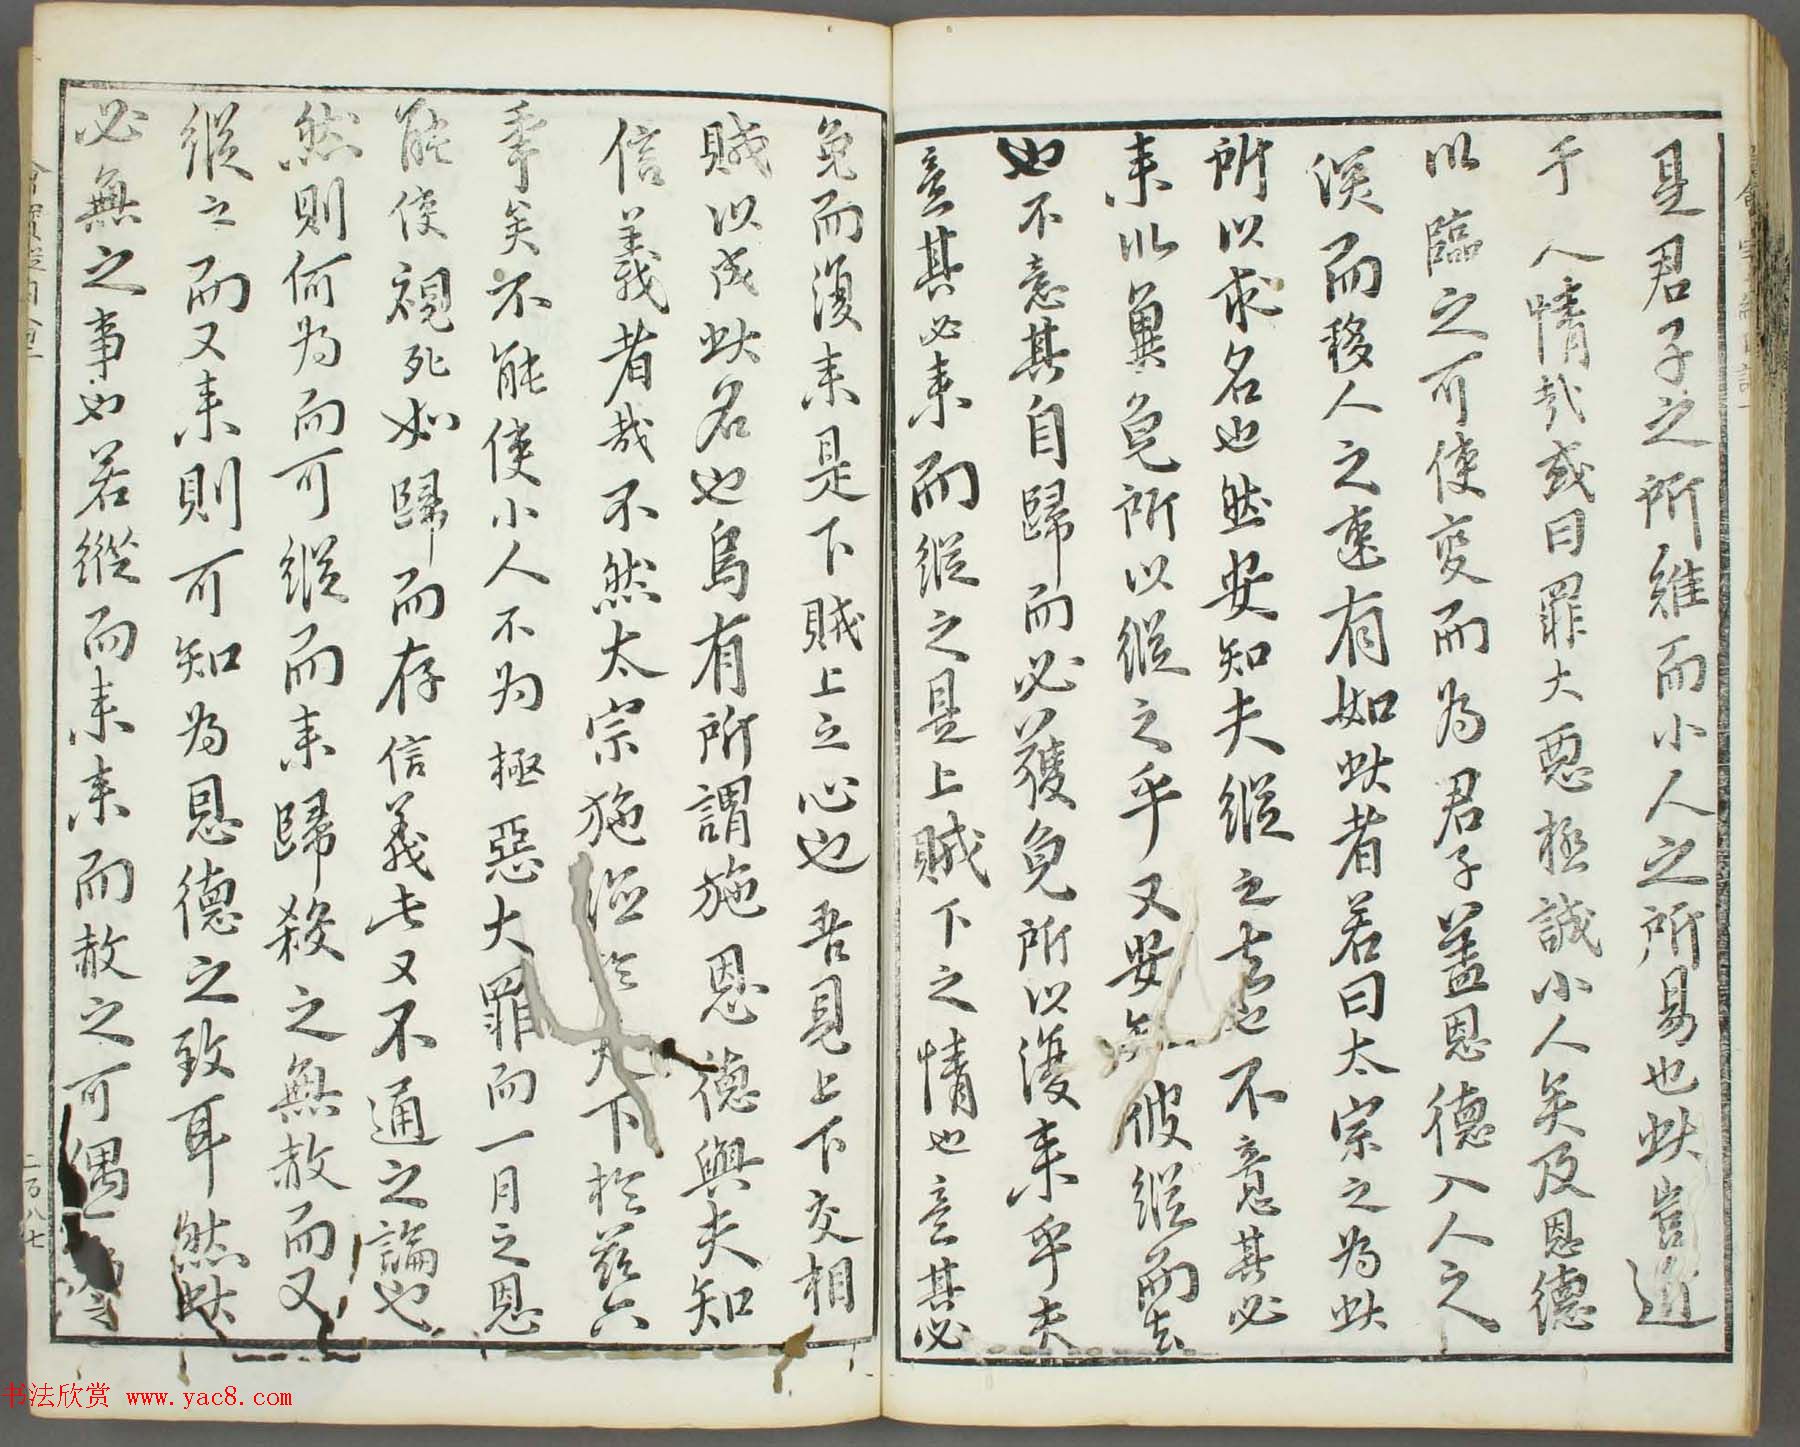 是君子之所難而小人之所易也此豈近
于人情哉或曰罪大惡極誠小人矣及恩德
以臨之可使変而為君子蓋恩德入人之
深而移人之速有如此者若曰太宗之為此
所以求名也然安知夫縱之去也不意其必
来以冀免所以縱之乎又安知彼縱而去
也不意其自歸而必獲免所以復来乎夫
意其必来而縱之是上賊下之情也意其必
免而復来是下賊上之心也吾見上下交相
賊以成此名也烏有所謂施恩德與夫知
信義者哉不然太宗施德於天下於茲六
年矣不能使小人不为極惡大罪而一月之恩
能使視死如歸而存信義此又不通之論也
然則何為而可縱而来歸殺之無赦而又
縱之而又来則可知為恩德之致耳然此
必無之事也若縱而来来而赦之可偶一為之
二百八七
书法欣赏 www.yac8.com